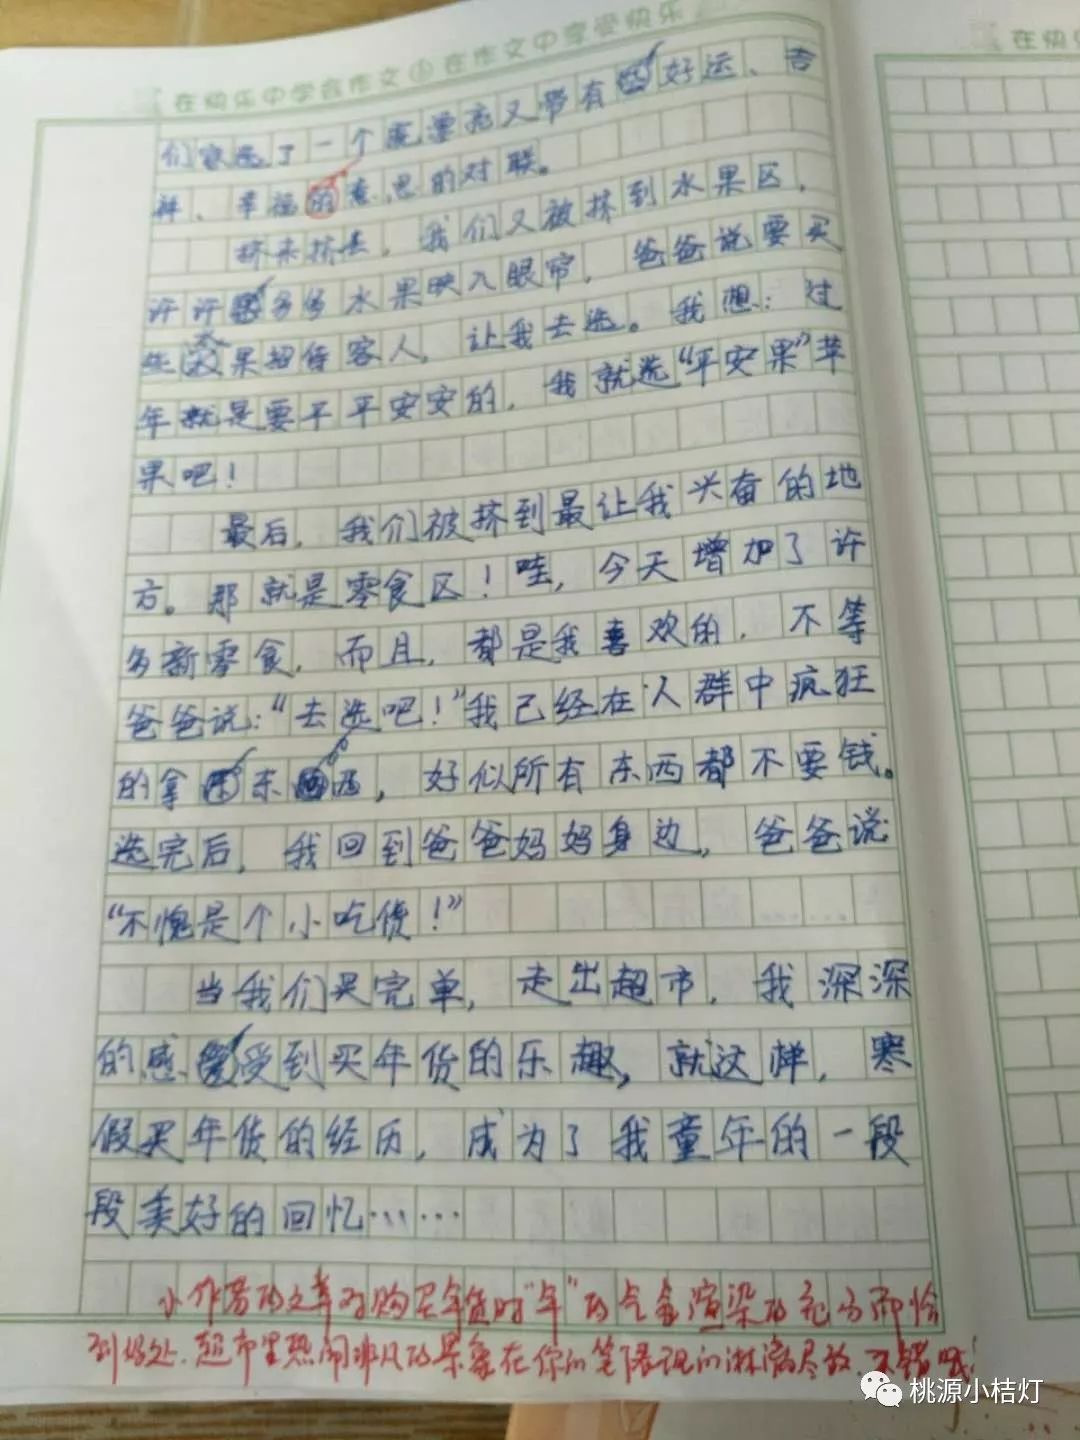 在快乐中学会作文 在作文中享受快乐
在快乐
们家选了一个既漂亮又带有好运、吉
祥、幸福的意思的对联。
挤来挤去，我们又被挤到水果区，
许许多多水果映入眼帘，爸爸说要买
些水果招待客人，让我去选。我想：过
年就是要平平安安的，我就选“平安果”苹
果吧！
最后，我们被挤到最让我兴奋的地
方。那就是零食区！哇，今天增加了许
多新零食，而且，都是我喜欢的，不等
爸爸说：“去选吧！”我已经在人群中疯狂
的拿东西，好似所有东西都不要钱。
选完后，我回到爸爸妈妈身边，爸爸说
“不愧是个小吃货！”
当我们买完单，走出超市，我深深
的感受到买年货的乐趣，就这样，寒
假买年货的经历，成为了我童年的一段
段美好的回忆……
小作者的文章对购买年货时“年”的气氛渲染的充分而恰
到好处，超市里热闹非凡的景象在你的笔下展现的淋漓尽致，不错哦！
桃源小桔灯